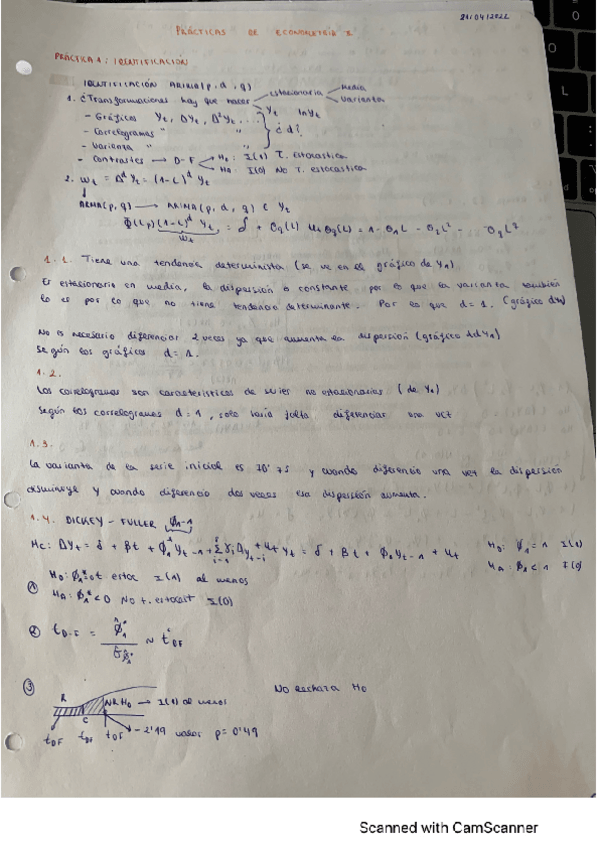 21/04/2022
PRÁCTICAS DE ECONOMETRÍA I
PRÁCTICA 1: IDENTIFICACIÓN
IDENTIFICACIÓN ARIMA(p, d, q)
1. ¿Transformaciones hay que hacer estacionaria media
varianza
- Gráficos Yt, ΔYt, Δ²Yt, ... Yt lnYt
- Correlogramas " "
¿d?
- Varianza " "
- Contrastes → D-F H0: I(1) T. estocástica
HA: I(0) No T. estocástica
2. Wt = Δ^d Yt = (1-L)^d Yt
ARMA(p,q) → ARIMA(p, d, q) Yt
(1-L)^d Yt = δ + θq(L) Ut θq(L) = 1 - θ1L - θ2L² - θqL^q
Wt
1.1. Tiene una tendencia determinista (se ve en el gráfico de Yt)
Es estacionario en media, la dispersión constante por lo que la varianza también
lo es por lo que no tiene tendencia determinante. Por lo que d = 1. (gráfico
No es necesario diferenciar 2 veces ya que aumenta la dispersión (gráfico
Según los gráficos d = 1.
1.2.
Los correlogramas son características de series no estacionarias (de Yt)
Según los correlogramas d = 1, solo haría falta diferenciar una vez
1.3.
La varianza de la serie inicial es y cuando diferencio una vez la dispersión
disminuye y cuando diferencio dos veces esa dispersión aumenta.
1.4. DICKEY-FULLER ϕ1-1
Mc: ΔYt = δ + βt + ϕ1* Yt-1 + Σ γi ΔYt-i + Ut Yt = δ + βt + ϕ1 Yt-1 + Ut H0: ϕ1 = 1 I(1)
HA: ϕ1 < 1 I(0)
① H0: ϕ1* = 0 t estoc I(1) al menos
HA: ϕ1* < 0 No t. estocást I(0)
② tD-F = ϕ̂1* / σ̂ϕ̂1* ~ tDF
③ No rechaza H0
R NRH0 → I(1) al menos
C
tDF tDF tDF -2'19 valor p = 0'49
Scanned with CamScanner